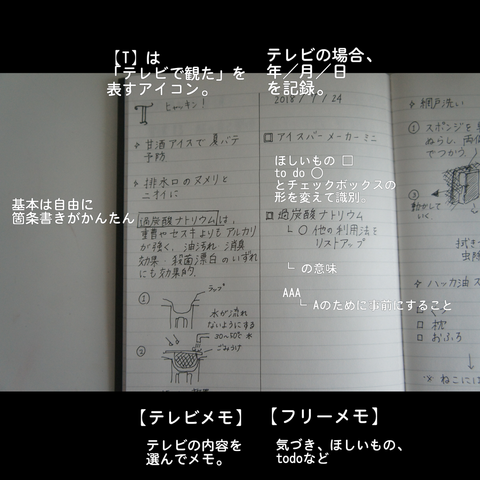 【T】は
「テレビで観た」を
表すアイコン。
テレビの場合、
年／月／日
を記録。
T ヒャッキン!
2018 / 7 / 24
甘酒アイスで夏バテ
予防
排水口のヌメリと
ニオイに
過炭酸ナトリウムは、
重曹やセスキよりもアルカリ
が強く、油汚れ 消臭
効果・殺菌漂白のいずれ
にも効果的.
①
ラップ
水が流れ
ないようにする
②
30～50℃ 水
ごみうけ
□ アイスバーメーカーミニ
ほしいもの □
to do ○
とチェックボックスの
形を変えて識別。
□ 過炭酸ナトリウム
└ ○ 他の利用法を
リストアップ
└ の意味
AAA
└ Aのために事前にすること
基本は自由に
箇条書きがかんたん
網戸洗い
① スポンジを
ぬらし、両
でつかう。
③
動かして
いく
拭き
虫除
ハッカ油ス
□ 枕
□ おふろ
※ ねこには
【テレビメモ】
テレビの内容を
選んでメモ。
【フリーメモ】
気づき、ほしいもの、
todoなど